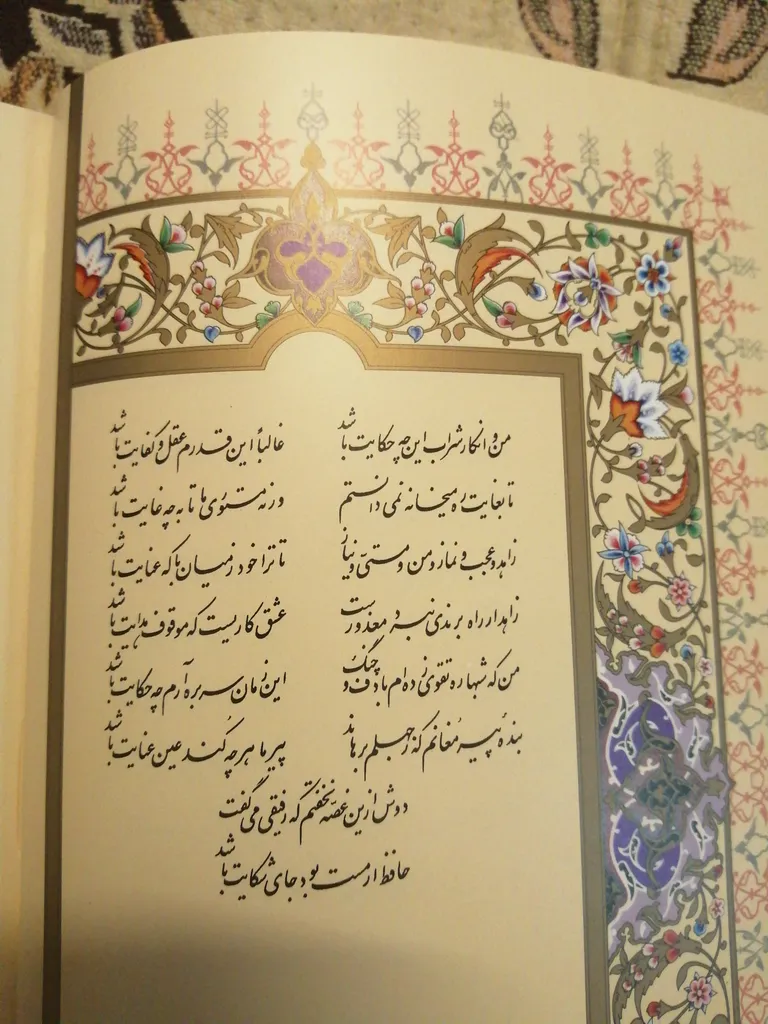 من و انکار شراب این چه حکایت باشد غالباً این قدرم عقل و کفایت باشد
تا بغایت ره میخانه نمی دانستم ورنه مستوری ما تا به چه غایت باشد
زاهد و عجب و نماز و من و مستی و نیاز تا ترا خود ز میان با که عنایت باشد
زاهد ار راه برندی نبرد معذورست عشق کاریست که موقوف هدایت باشد
من که شبها ره تقوی زده ام با دف و چنگ این زمان سر بره آرم چه حکایت باشد
بنده پیر مغانم که ز جهلم برهاند پیر ما هر چه کند عین عنایت باشد
دوش ازین غصه نخفتم که رفیقی می گفت
حافظ ار مست بود جای شکایت باشد